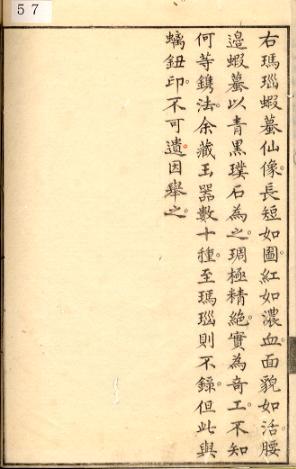 57
右瑪瑙蝦蟇仙像。長短如圖。紅如濃血。面貌如活。腰
邉蝦蟇以青黑璞石為之。琱極精絶。實為奇工。不知
何等鐫法。余藏玉器數十種。至瑪瑙則不錄。但此與
螭鈕印。不可遺。因舉之。